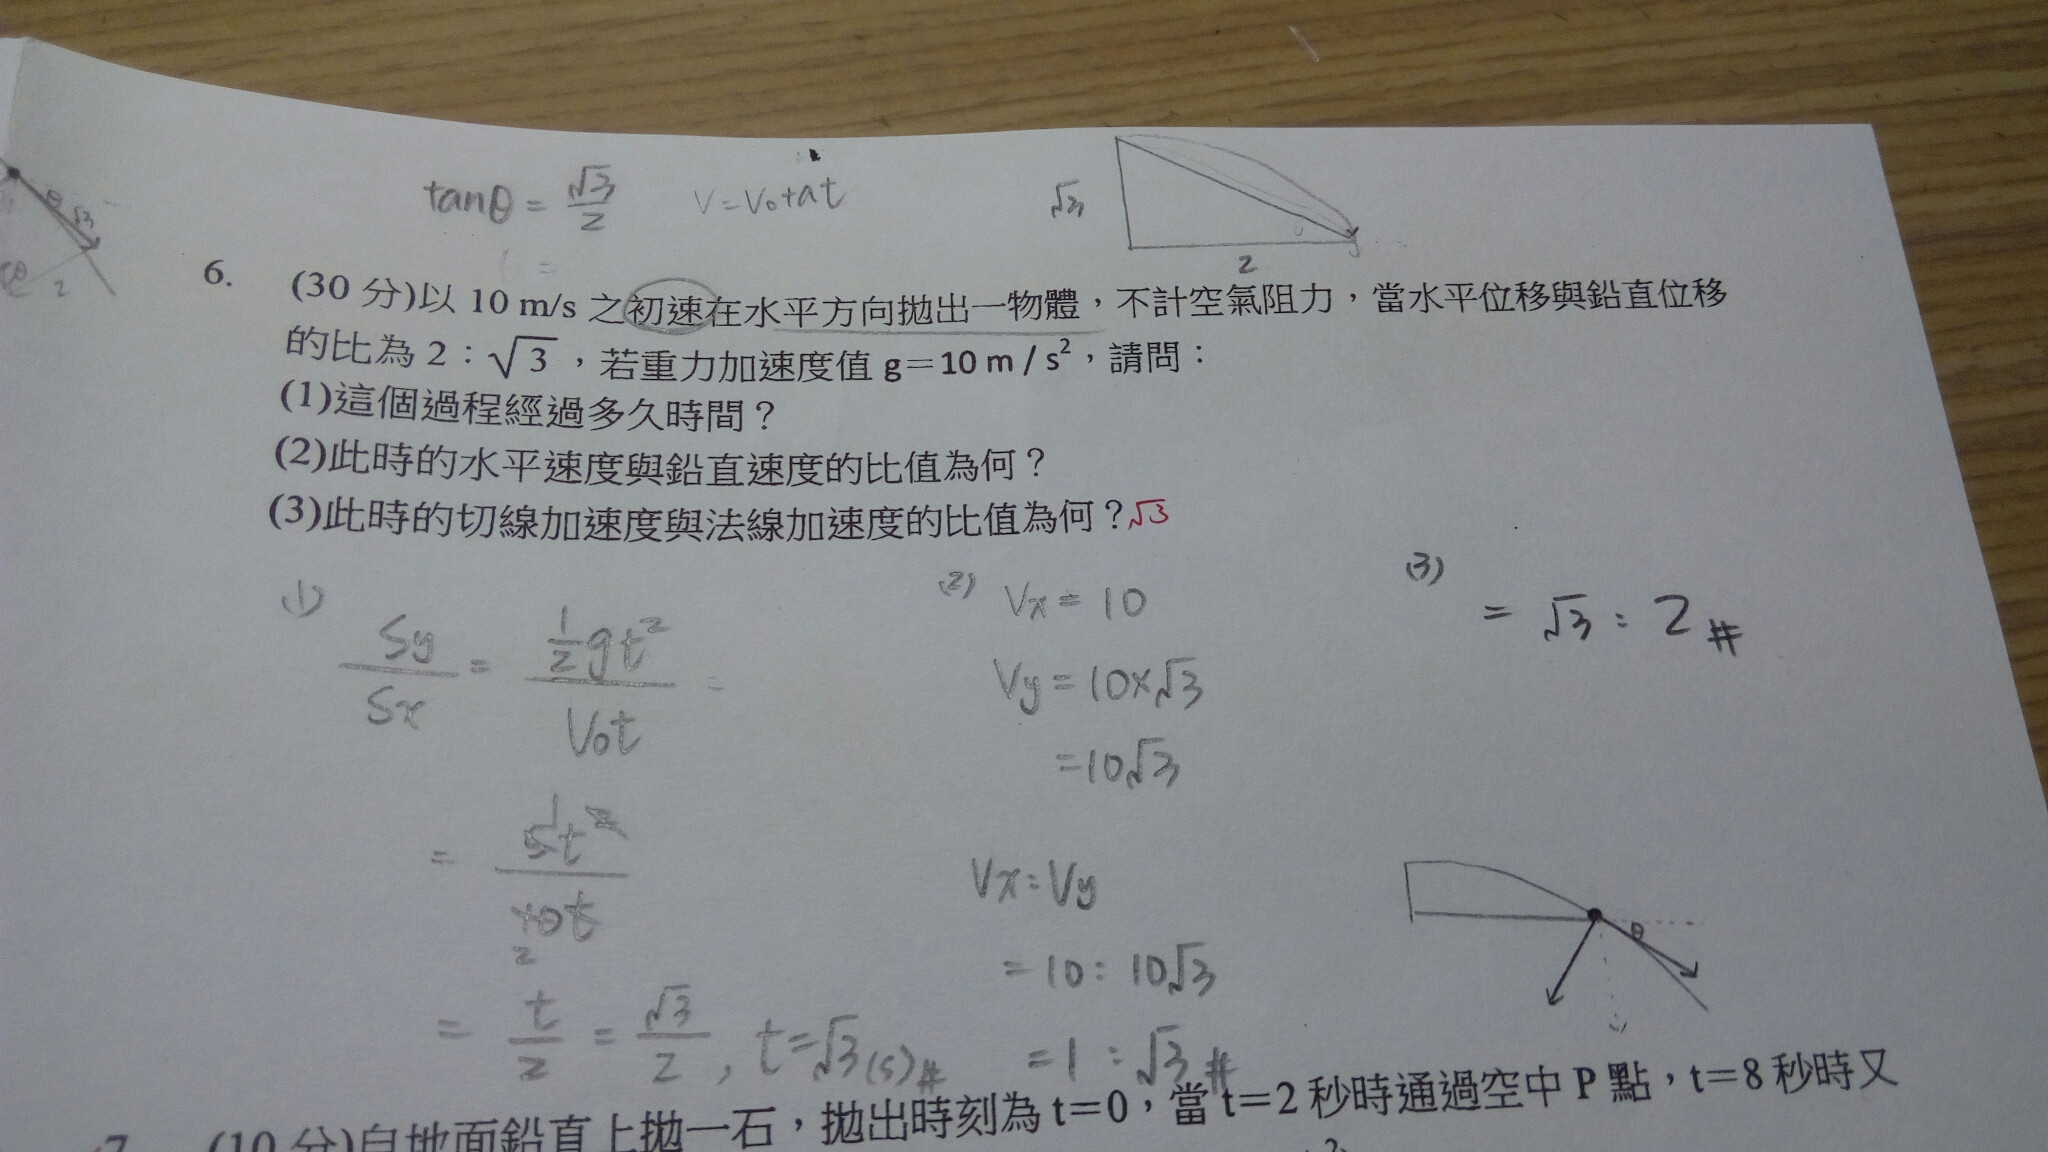 tanθ = √3/2  V=V₀+at
√3
2
θ √3
2
6. (30 分)以 10 m/s 之初速在水平方向拋出一物體，不計空氣阻力，當水平位移與鉛直位移
的比為 2：√3，若重力加速度值 g＝10 m / s²，請問：
(1)這個過程經過多久時間？
(2)此時的水平速度與鉛直速度的比值為何？
(3)此時的切線加速度與法線加速度的比值為何？√3
(1)
Sy/Sx = ½gt²/V₀t =
= 5t²/10t
1
2
= t/2 = √3/2 , t=√3(s)#
(2) Vx = 10
Vy = 10×√3
=10√3
Vx : Vy
= 10 : 10√3
= 1 : √3 #
(3)
= √3 : 2 #
θ
7. (10 分)自地面鉛直上拋一石，拋出時刻為 t＝0，當 t＝2 秒時通過空中 P 點，t＝8 秒時又